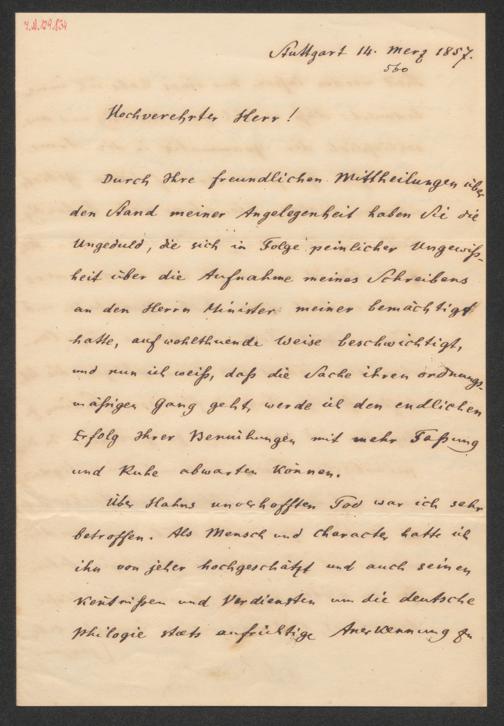 Stuttgart 14. Merz 1857.
560
Hochverehrter Herr!
Durch Ihre freundlichen Mittheilungen über
den Stand meiner Angelegenheit haben Sie die
Ungeduld, die sich in Folge peinlicher Ungewiß-
heit über die Aufnahme meines Schreibens
an den Herrn Minister meiner bemächtigt
hatte, auf wohlthuende Weise beschwichtigt,
und nun ich weiß, daß die Sache ihren ordnungs-
mäßigen Gang geht, werde ich den endlichen
Erfolg Ihrer Bemühungen mit mehr Faßung
und Ruhe abwarten können.
Über Hahns unverhofften Tod war ich sehr
betroffen. Als Mensch und Character hatte ich
ihn von jeher hochgeschätzt und auch seinen
Kentnißen und Verdiensten um die deutsche
Philogie stets aufrichtige Anerkennung zu